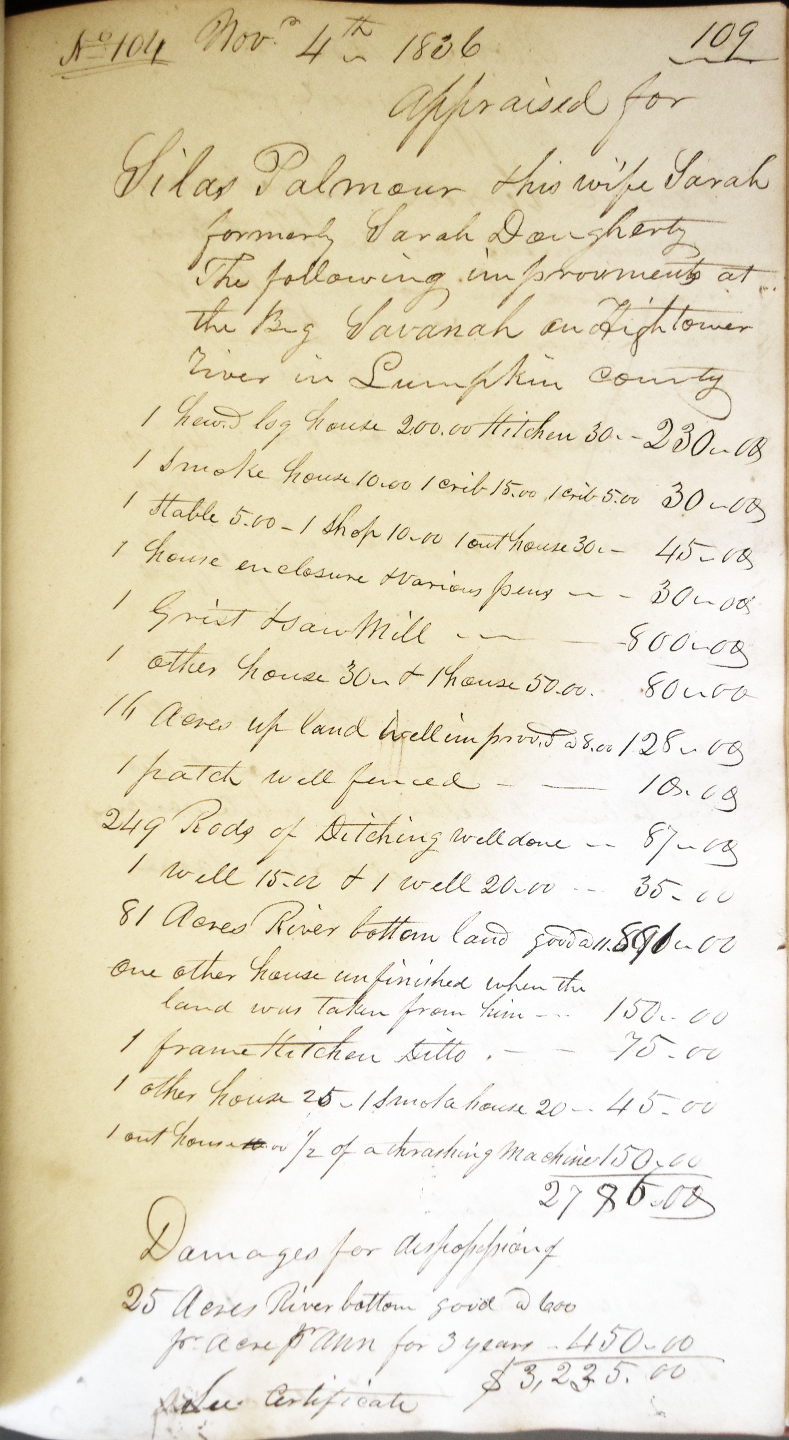 No 104 Nov.r 4th 1836 109
Appraised for
Silas Palmour & his wife Sarah
formerly Sarah Dougherty
The following improvments at
the Big Savanah on Hightower
river in Lumpkin county
1 hewd log house 200.00 Kitchen 30.- 230.00
1 smoke house 10.00 1 crib 15.00 1 crib 5.00 30.00
1 Stable 5.00 - 1 Shop 10.00 1 out house 30.- 45.00
1 house enclosure & various pens - - 30.00
1 Grist & saw Mill - - 800.00
1 other house 30.- & 1 house 50.00. 80.00
16 Acres up land well improvd @ 8.00 128.00
1 patch well fenced - - 10.00
249 Rods of Ditching well done -- 87.00
1 well 15.00 & 1 well 20.00 -- 35.00
81 Acres River bottom land good @ 11. 891.00
One other house unfinished when the
land was taken from him -- 150.00
1 frame Kitchen Ditto . - - 75.00
1 other house 25 - 1 Smoke house 20 -- 45.00
1 out house 1/2 of a thrashing Machine 150.00
2786.00
Damages for dispossessiong
25 Acres River bottom good @ 600
pr acre pr Ann for 3 years - 450.00
$3,235.00
See Certificate